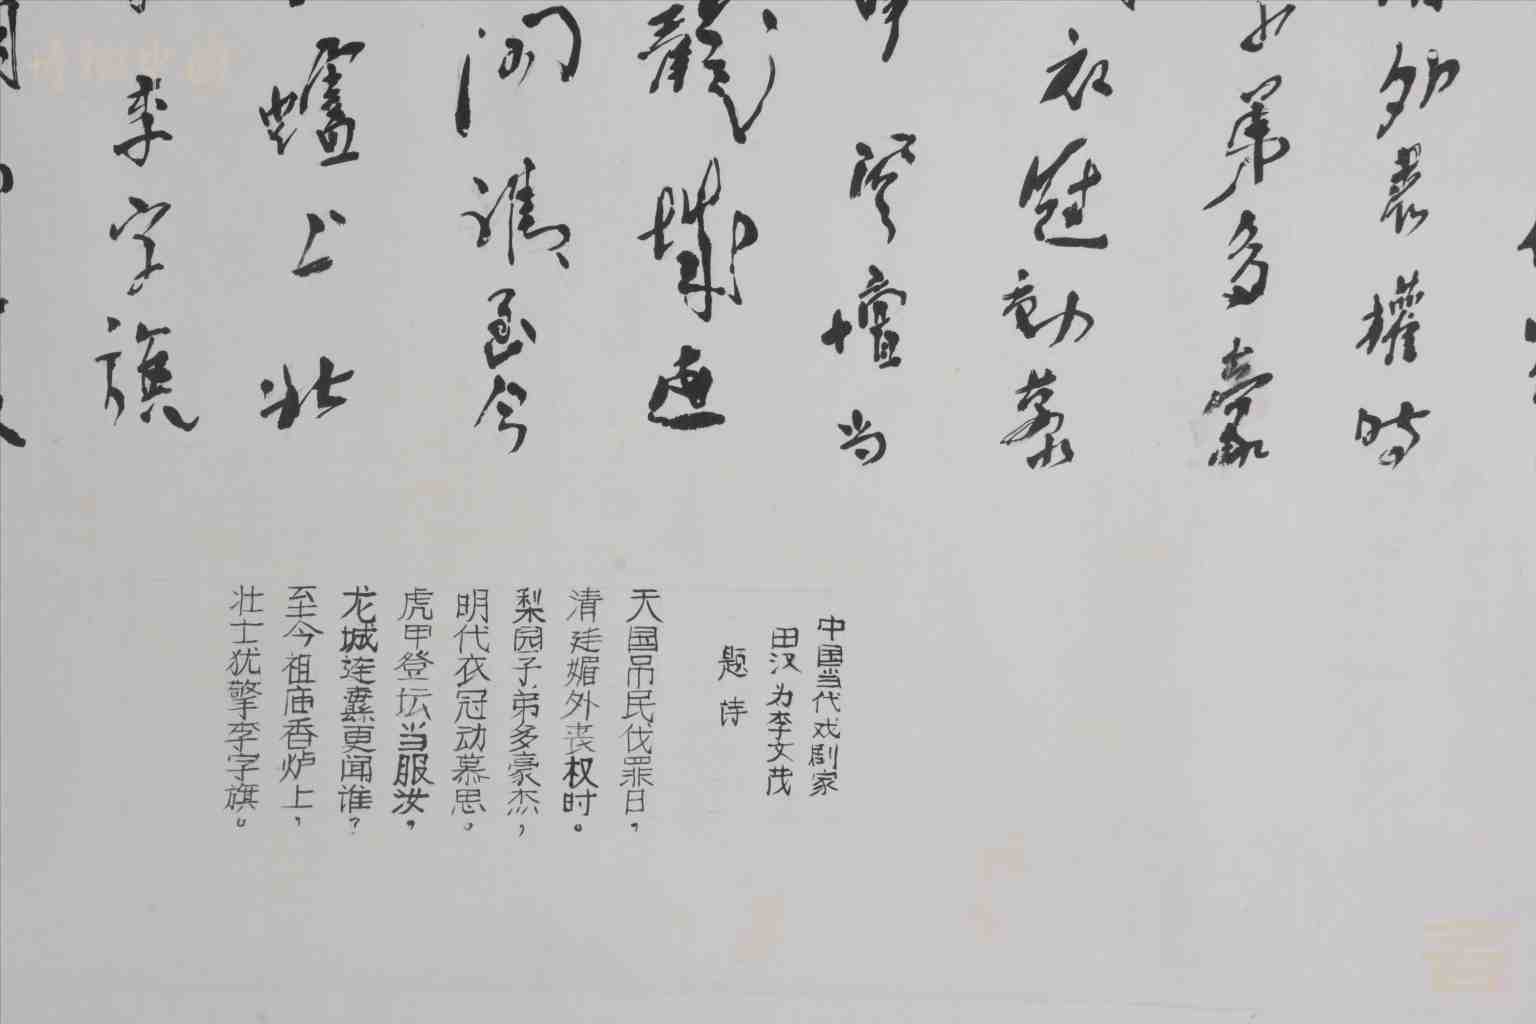 外丧權時
弟多豪
衣冠動慕
登壇当
龍城連
闻誰至今
爐上壮
李字旗
中国当代戏剧家
田汉为李文茂
题诗
天国吊民伐罪日，
清廷媚外丧权时。
梨园子弟多豪杰，
明代衣冠动慕思。
虎甲登坛当服汝，
龙城连纛更闻谁？
至今祖庙香炉上，
壮士犹擎李字旗。